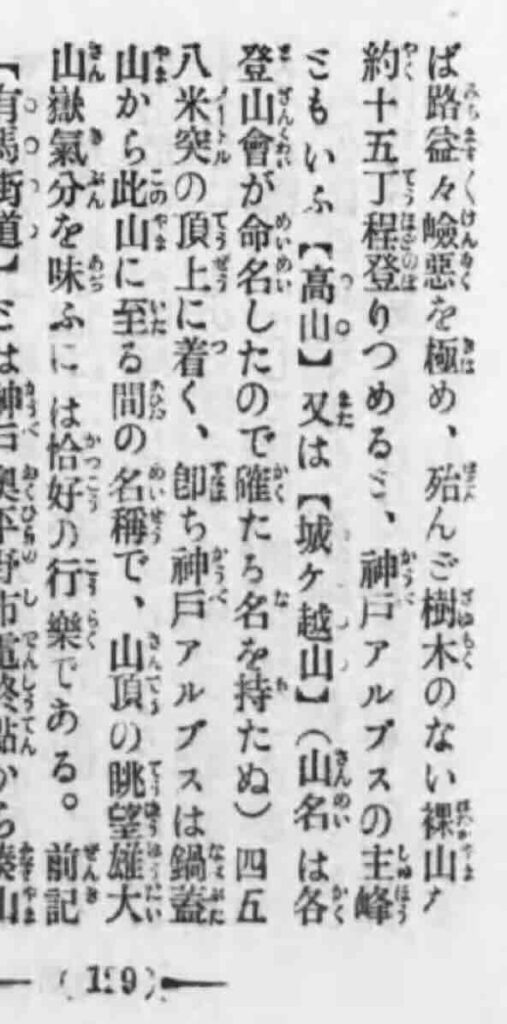 ば路益々嶮惡を極め、殆んど樹木のない裸山を
約十五丁程登りつめるミ、神戸アルプスの主峰
ミもいふ【高山】又は【城ヶ越山】（山名は各
登山會が命名したので確たる名を持たぬ）四五
八米突の頂上に着く、卽ち神戸アルプスは鍋蓋
山から此山に至る間の名稱で、山頂の眺望雄大
山嶽氣分を味ふには恰好の行樂である。前記
【有馬街道】ミは神戸奥平野市電終點から湊山
(129)